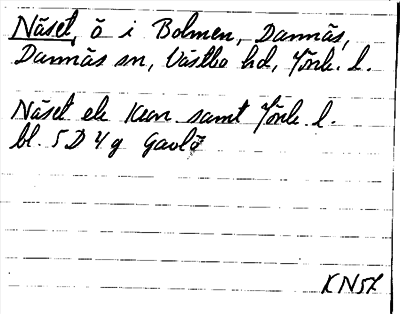 Näset, ö i Bolmen, Dannäs,
Dannäs sn, Västbo hd, Jönk. l.
Näset ek kan samt Jönk. l.
bl. 5D4g Gavlö
KN57